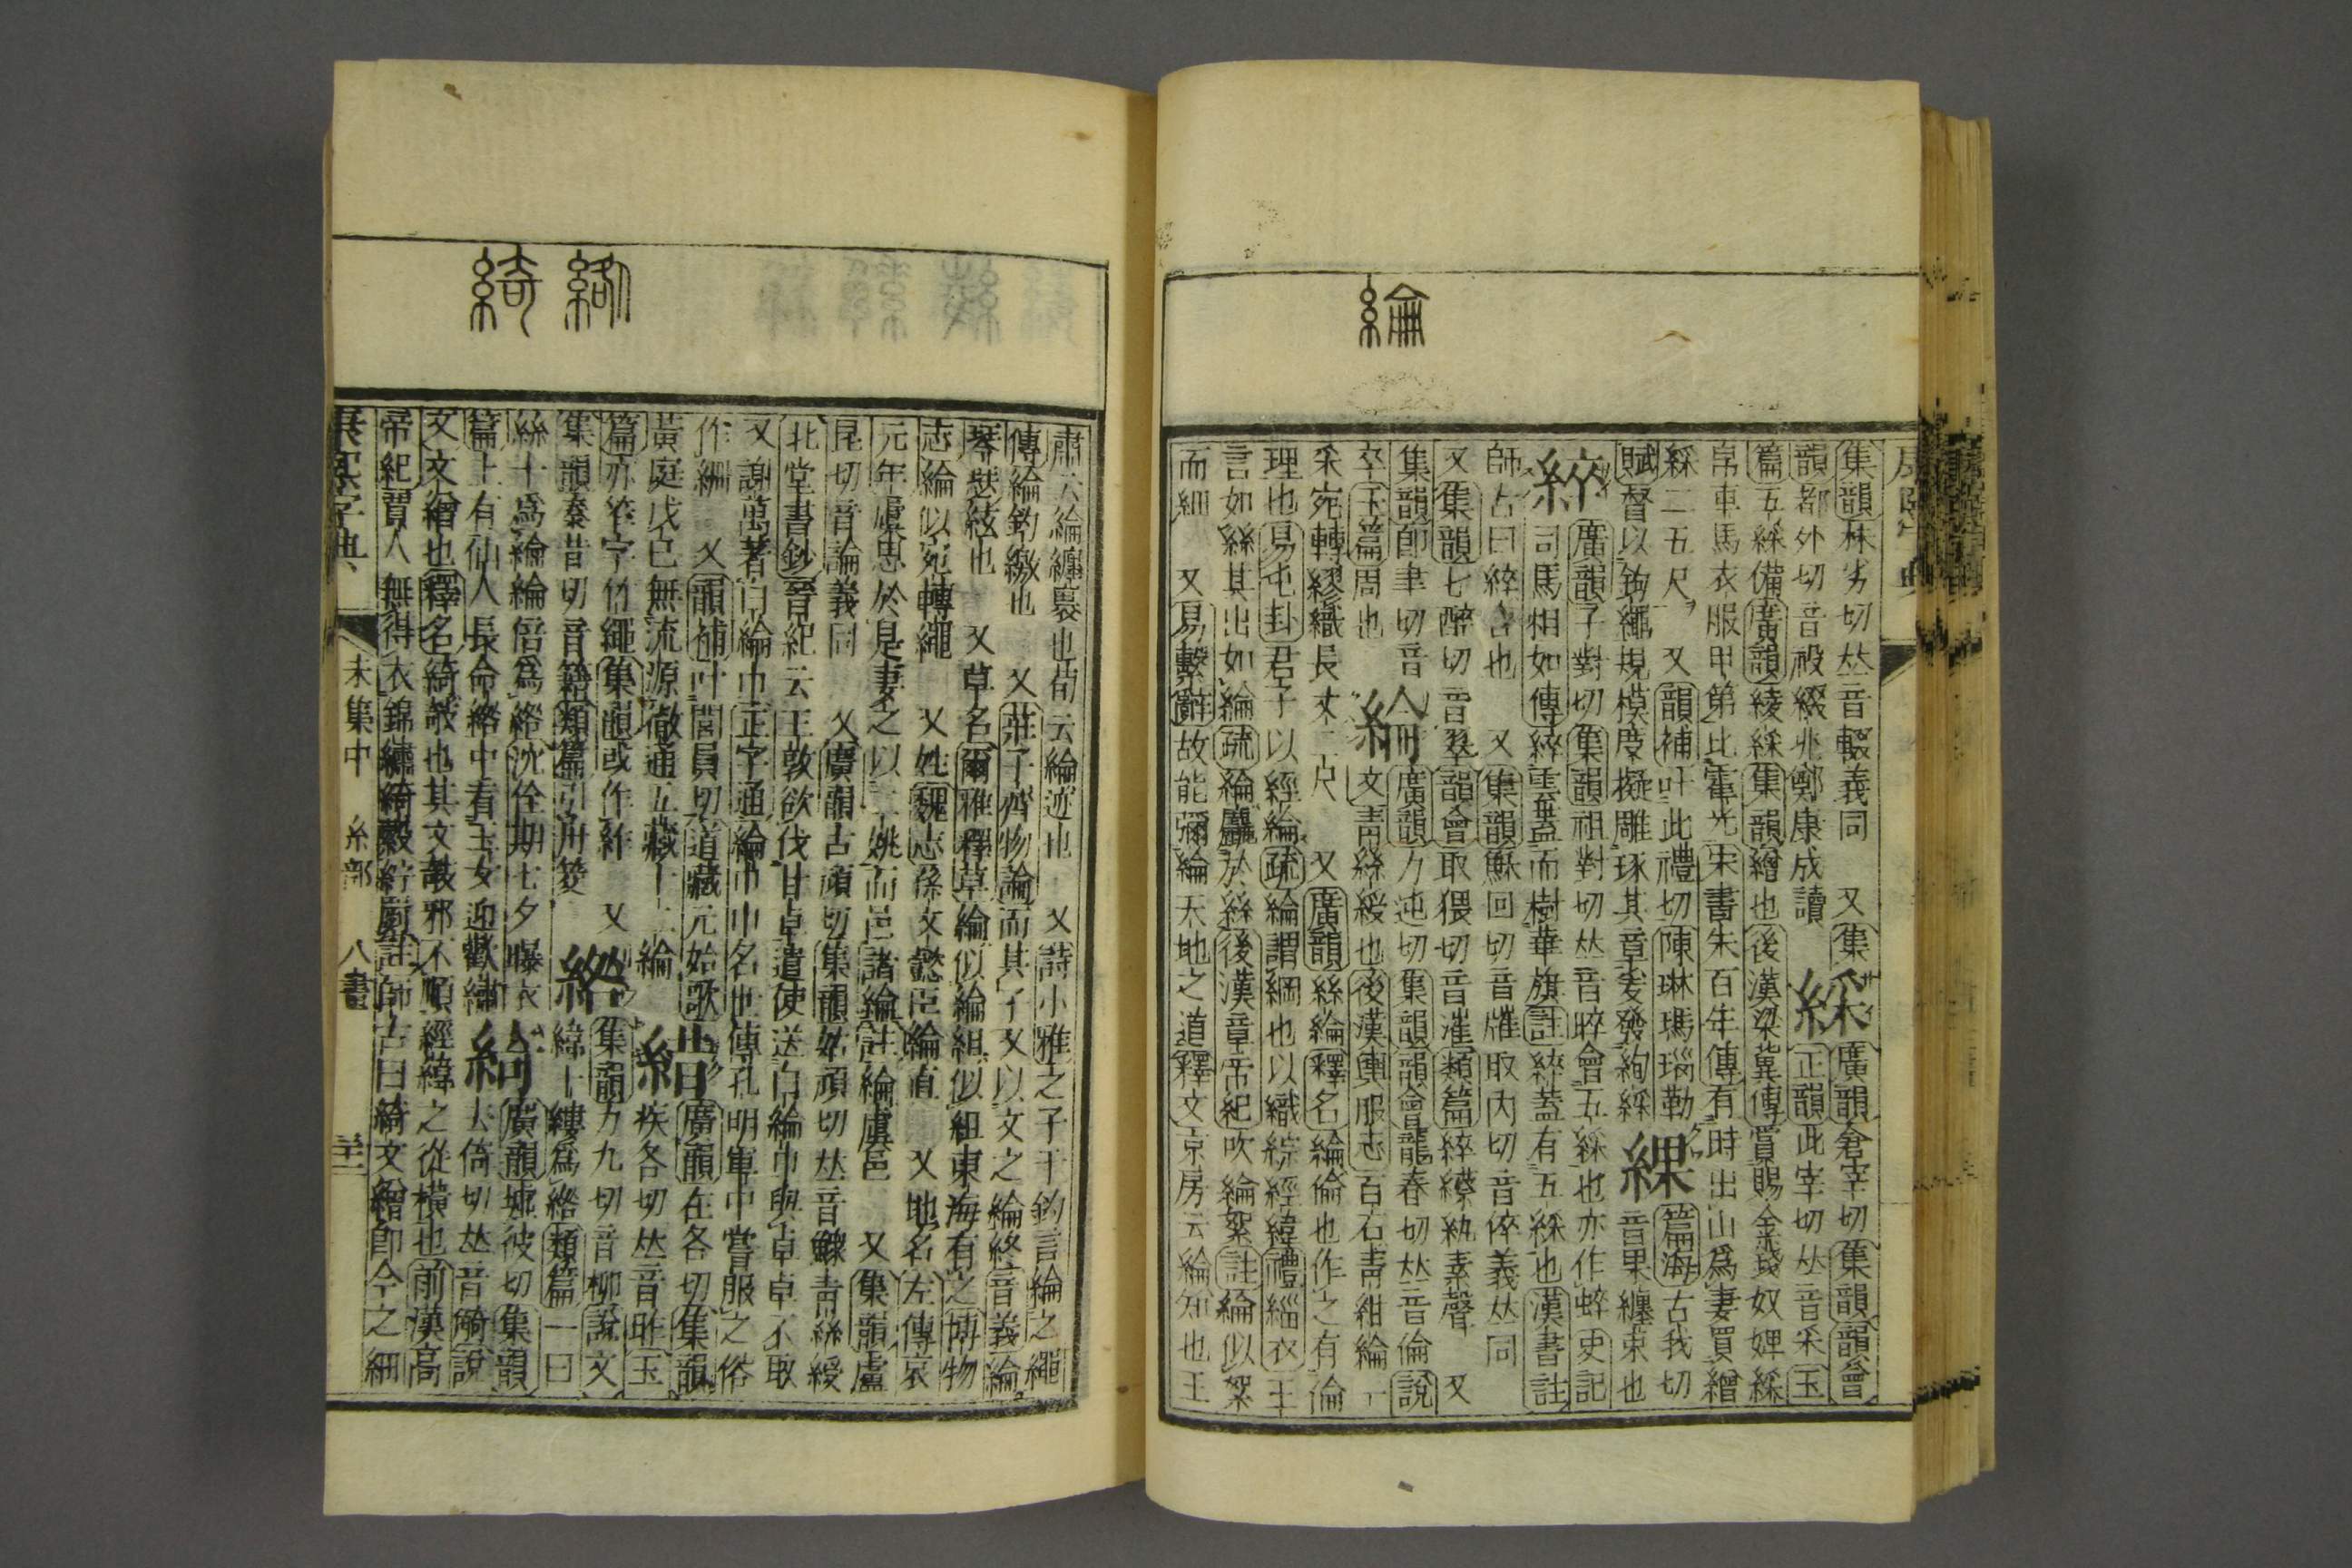 綸
集韻株劣切𠀤音輟義同 又集
韻都外切音祋綴兆鄭康成讀 綵 廣韻倉宰切集韻韻會
正韻此宰切𠀤音采玉
篇五綵備廣韻綾綵集韻繒也後漢梁冀傳賞賜金錢奴婢綵
帛車馬衣服甲第比霍光宋書朱百年傳有時出山爲妻買繒
綵二五尺 又韻補叶此禮切陳琳瑪瑙勒
賦督以鉤繩規模度擬雕琢其章爰發絢綵 綶 篇海古我切
音果纏束也
綷 廣韻子對切集韻祖對切𠀤音晬會五綵也亦作䘹史記
司馬相如傳綷雲蓋而樹華旗註綷蓋有五綵也漢書註
師古曰綷合也 又集韻穌回切音膗取內切音倅義𠀤同
又集韻七醉切音翠韻會取猥切音漼類篇綷縩紈素聲 又
集韻卽聿切音
卒玉篇周也 綸 廣韻力迍切集韻韻會龍春切𠀤音倫說
文靑絲綬也後漢輿服志百石靑紺綸一
采宛轉繆織長丈二尺 又廣韻絲綸釋名綸倫也作之有倫
理也易屯卦君子以經綸疏綸謂綱也以織綜經緯禮緇衣王
言如絲其出如綸疏綸麤於絲後漢章帝紀吹綸絮註綸似絮
而細 又易繫辭故能彌綸天地之道釋文京房云綸知也王
絡 綺
肅云綸纏裹也荀云綸迹也 又詩小雅之子于釣言綸之繩
傳綸釣繳也 又莊子齊物論而其子又以文之綸終音義綸
琴瑟絃也 又草名爾雅釋草綸似綸組似組東海有之博物
志綸似宛轉繩 又姓魏志孫文懿臣綸直 又地名左傳哀
元年虞思於是妻之以二姚而邑諸綸註綸虞邑 又集韻盧
昆切音論義同 又廣韻古頑切集韻姑頑切𠀤音鰥靑絲綬
北堂書鈔晉紀云王敦欲伐甘卓遣使送白綸巾與卓卓不取
又謝萬著白綸巾正字通綸巾巾名世傳孔明軍中嘗服之俗
作 又韻補叶閭員切道藏元始歌
黃庭戊己無流源徹通五藏十二綸 䊝 廣韻在各切集韻
疾各切𠀤音昨玉
篇亦筰字竹繩集韻或作䋏 又
集韻秦昔切音籍類篇引舟筊 綹 集韻力九切音柳說文
緯十縷爲綹類篇一曰
絲十爲綸綸倍爲綹沈佺期七夕曝衣
篇上有仙人長命綹中看玉女迎歡繡 綺 廣韻墟彼切集韻
去倚切𠀤音 說
文文繒也釋名綺敧也其文敧邪不順經緯之從橫也前漢高
帝紀賈人無得衣錦繡綺縠絺紵罽註師古曰綺文繒卽今之細
康熙字典 未集中 糸部 八畫